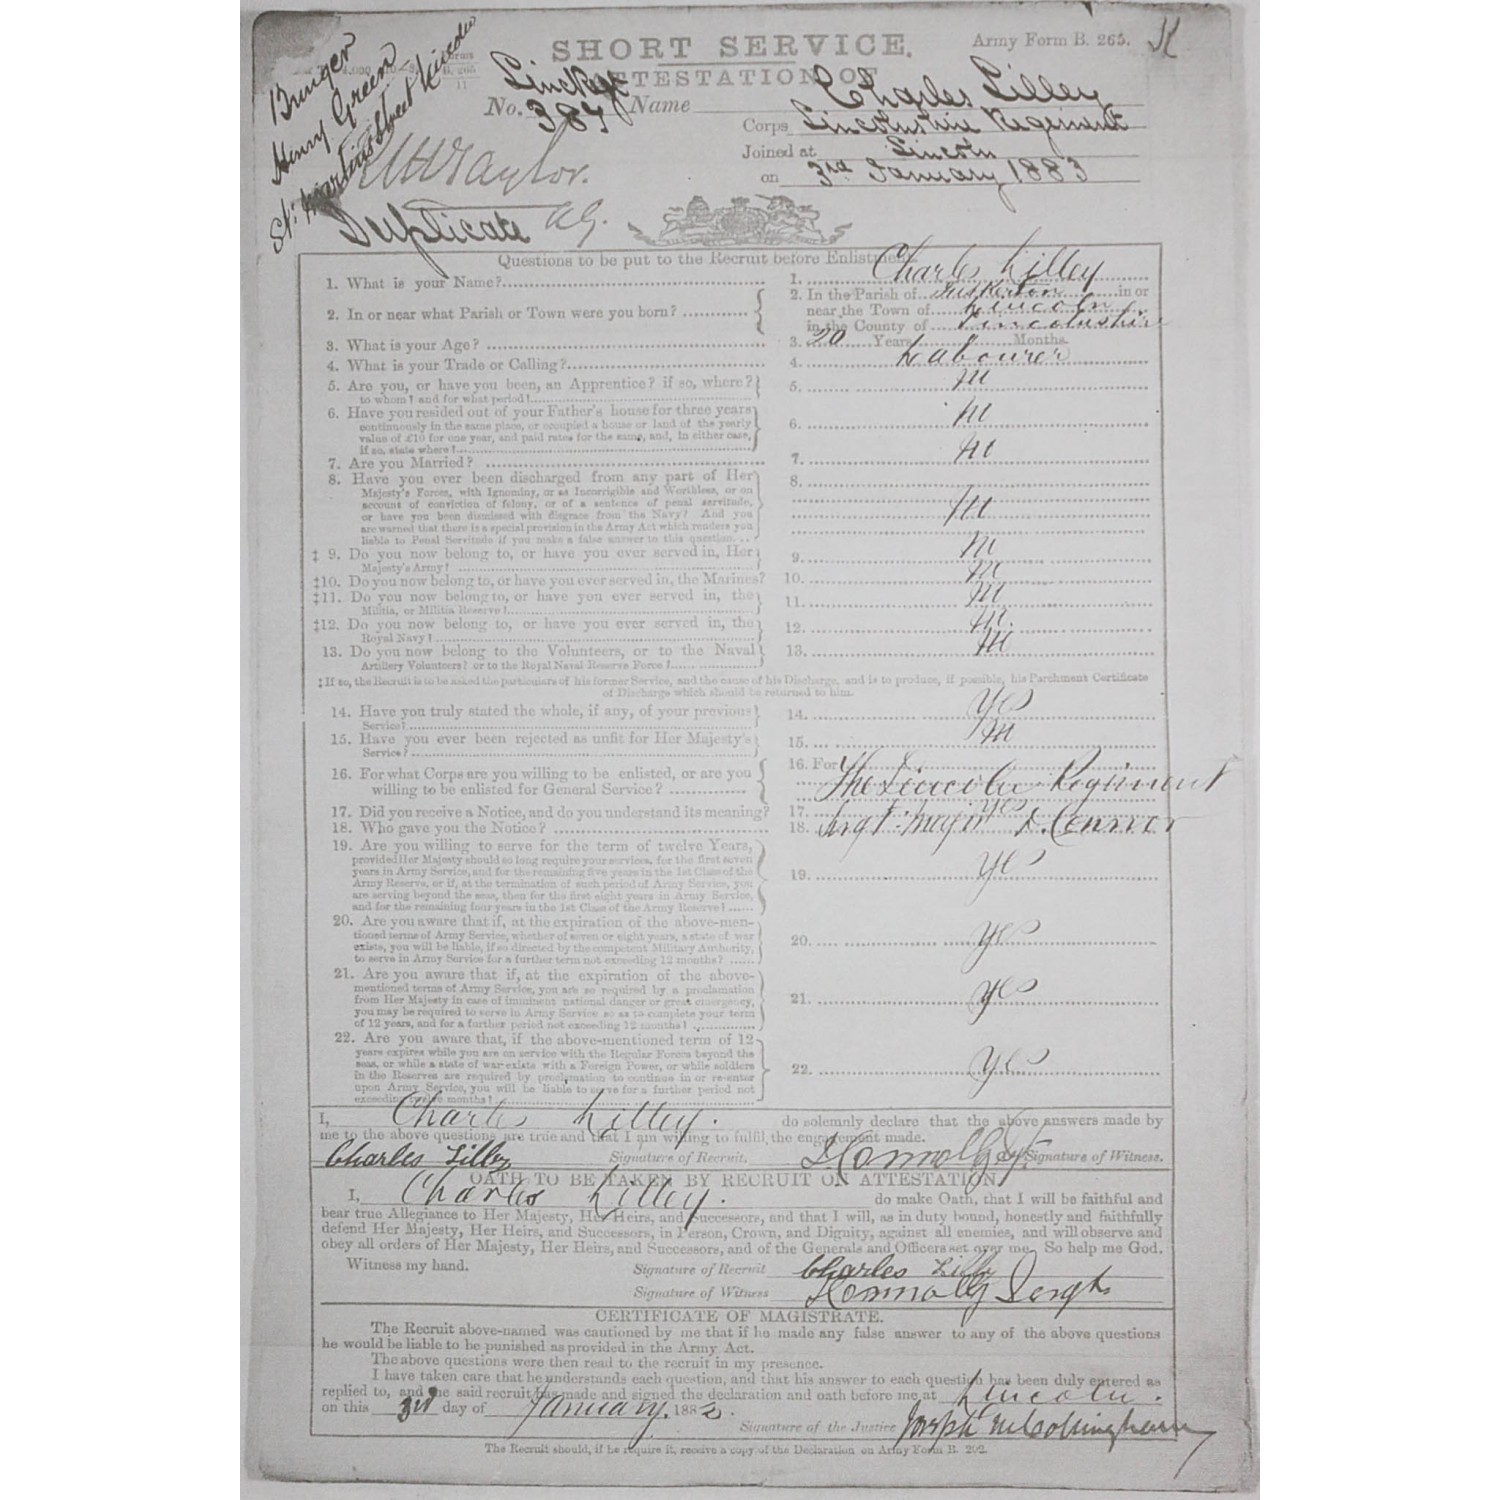 SHORT SERVICE.
Army Form B. 265.
ATTESTATION OF
Bringer
Henry Green
St: Martins Street Lincoln
No. 387 Name Charles Lilley
Corps Lincolnshire Regiment
Joined at Lincoln
on 3rd January 1883
Taylor.
Duplicate
Questions to be put to the Recruit before Enlistment.
1. What is your Name? 1. Charles Lilley
2. In or near what Parish or Town were you born? 2. In the Parish of in or
near the Town of Lincoln
in the County of Lincolnshire
3. What is your Age? 3. 20 Years Months.
4. What is your Trade or Calling? 4. Labourer
5. Are you, or have you been, an Apprentice? if so, where? 5.
to whom? and for what period?
6. Have you resided out of your Father's house for three years 6.
continuously in the same place, or occupied a house or land of the yearly
value of £10 for one year, and paid rates for the same, and, in either case,
if so, state where?
7. Are you Married? 7.
8. Have you ever been discharged from any part of Her 8.
Majesty's Forces, with Ignominy, or as Incorrigible and Worthless, or on
account of conviction of felony, or of a sentence of penal servitude,
or have you been dismissed with disgrace from the Navy? And you
are warned that there is a special provision in the Army Act which renders you
liable to Penal Servitude if you make a false answer to this question.
‡ 9. Do you now belong to, or have you ever served in, Her 9.
Majesty's Army?
‡10. Do you now belong to, or have you ever served in, the Marines? 10.
‡11. Do you now belong to, or have you ever served in, the 11.
Militia, or Militia Reserve?
‡12. Do you now belong to, or have you ever served in, the 12.
Royal Navy?
13. Do you now belong to the Volunteers, or to the Naval 13.
Artillery Volunteers? or to the Royal Naval Reserve Force?
‡If so, the Recruit is to be asked the particulars of his former Service, and the cause of his Discharge, and is to produce, if possible, his Parchment Certificate
of Discharge which should be returned to him.
14. Have you truly stated the whole, if any, of your previous 14. Yes
Service?
15. Have you ever been rejected as unfit for Her Majesty's 15.
Service?
16. For what Corps are you willing to be enlisted, or are you 16. For
willing to be enlisted for General Service? The Lincoln Regiment
17. Did you receive a Notice, and do you understand its meaning? 17. Yes
18. Who gave you the Notice? 18.
19. Are you willing to serve for the term of twelve Years, 19. Yes
provided Her Majesty should so long require your services, for the first seven
years in Army Service, and for the remaining five years in the 1st Class of the
Army Reserve, or if, at the termination of such period of Army Service, you
are serving beyond the seas, then for the first eight years in Army Service,
and for the remaining four years in the 1st Class of the Army Reserve?
20. Are you aware that if, at the expiration of the above-men- 20. Yes
tioned terms of Army Service, whether of seven or eight years, a state of war
exists, you will be liable, if so directed by the competent Military Authority,
to serve in Army Service for a further term not exceeding 12 months?
21. Are you aware that if, at the expiration of the above- 21. Yes
mentioned terms of Army Service, you are so required by a proclamation
from Her Majesty in case of imminent national danger or great emergency,
you may be required to serve in Army Service so as to complete your term
of 12 years, and for a further period not exceeding 12 months?
22. Are you aware that, if the above-mentioned term of 12 22. Yes
years expires while you are on service with the Regular Forces beyond the
seas, or while a state of war exists with a Foreign Power, or while soldiers
in the Reserves are required by proclamation to continue in or re-enter
upon Army Service, you will be liable to serve for a further period not
exceeding twelve months?
I, Charles Lilley. do solemnly declare that the above answers made by
me to the above questions are true and that I am willing to fulfil the engagement made.
Charles Lilley Signature of Recruit. Signature of Witness.
OATH TO BE TAKEN BY RECRUIT ON ATTESTATION.
I, Charles Lilley. do make Oath, that I will be faithful and
bear true Allegiance to Her Majesty, Her Heirs, and Successors, and that I will, as in duty bound, honestly and faithfully
defend Her Majesty, Her Heirs, and Successors, in Person, Crown, and Dignity, against all enemies, and will observe and
obey all orders of Her Majesty, Her Heirs, and Successors, and of the Generals and Officers set over me. So help me God.
Witness my hand. Signature of Recruit Charles Lilley
Signature of Witness Connolly Sergt
CERTIFICATE OF MAGISTRATE.
The Recruit above-named was cautioned by me that if he made any false answer to any of the above questions
he would be liable to be punished as provided in the Army Act.
The above questions were then read to the recruit in my presence.
I have taken care that he understands each question, and that his answer to each question has been duly entered as
replied to, and the said recruit has made and signed the declaration and oath before me at Lincoln.
on this 3rd day of January. 188
Signature of the Justice Joseph
The Recruit should, if he require it, receive a copy of the Declaration on Army Form B. 202.